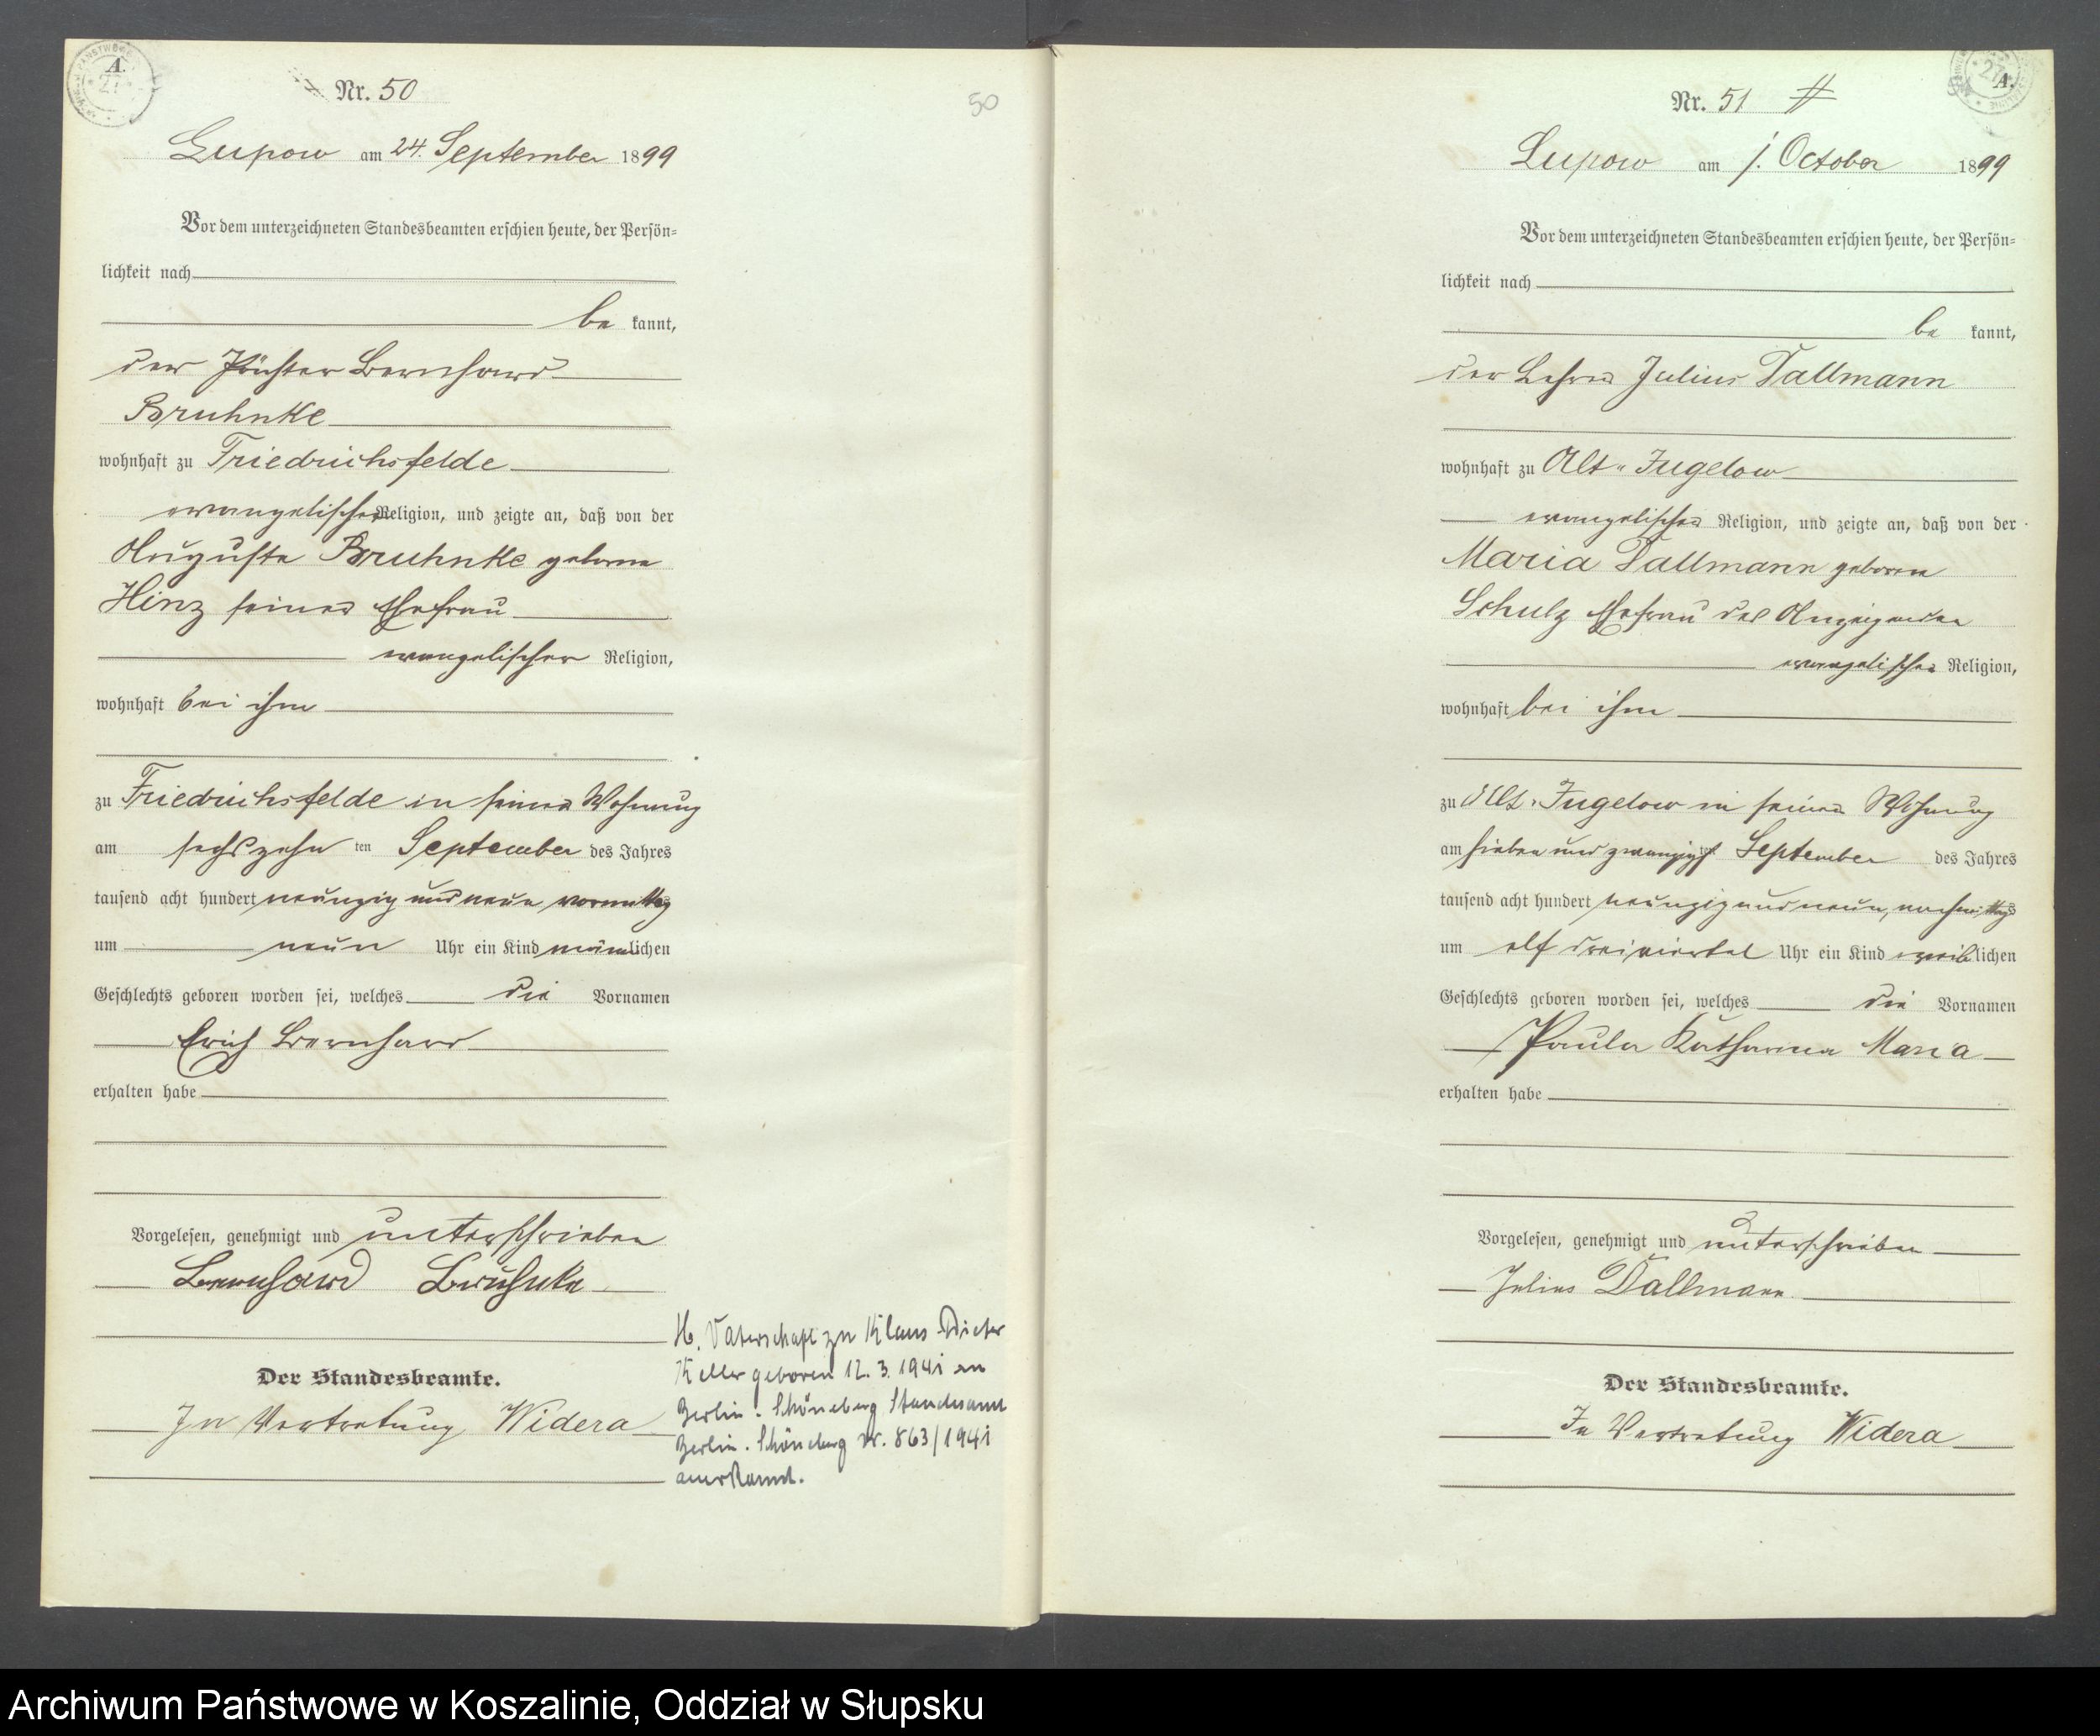 A.
27
Nr. 50
50
Lupow am 24. September 1899
Vor dem unterzeichneten Standesbeamten erschien heute, der Persön=
lichkeit nach
be kannt,
der Pächter Bernhard
Bruhnke
wohnhaft zu Friedrichsfelde
evangelischer Religion, und zeigte an, daß von der
Auguste Bruhnke geborne
Hinz seiner Ehefrau
evangelischer Religion,
wohnhaft bei ihm
zu Friedrichsfelde in seiner Wohnung
am sechszehn ten September des Jahres
tausend acht hundert neunzig und neun vormittags
um neun Uhr ein Kind männlichen
Geschlechts geboren worden sei, welches die Vornamen
Erich Bernhard
erhalten habe
Vorgelesen, genehmigt und unterschrieben
Bernhard Bruhnke
Der Standesbeamte.
In Vertretung Widera
Vaterschaft zu Klaus Dieter
Keller geboren 12. 3. 1941 in
Berlin-Schöneberg Standesamt
Berlin-Schöneberg Nr. 863/1941
anerkannt.
27
A.
Nr. 51
Lupow am 1. October 1899
Vor dem unterzeichneten Standesbeamten erschien heute, der Persön=
lichkeit nach
be kannt,
der Lehrer Julius Dallmann
wohnhaft zu Alt-Jugelow
evangelischer Religion, und zeigte an, daß von der
Maria Dallmann geborene
Schulz Ehefrau des Anzeigenden
evangelischer Religion,
wohnhaft bei ihm
zu Alt-Jugelow in seiner Wohnung
am sieben und zwanzigsten September des Jahres
tausend acht hundert neunzig und neun, nachmittags
um elf dreiviertel Uhr ein Kind weiblichen
Geschlechts geboren worden sei, welches die Vornamen
Paula Katharina Maria
erhalten habe
Vorgelesen, genehmigt und unterschrieben
Julius Dallmann
Der Standesbeamte.
In Vertretung Widera
Archiwum Państwowe w Koszalinie, Oddział w Słupsku